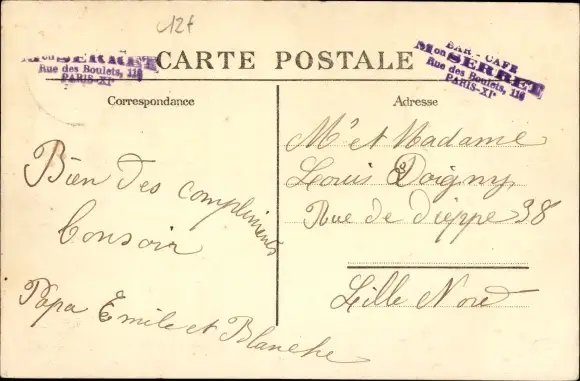 c12f
Mon SERRET
Rue des Boulets, 118
PARIS-XIe
CARTE POSTALE
BAR - CAFE
Mon SERRET
Rue des Boulets, 118
PARIS-XIe
Correspondance
Adresse
Bien des compliments
Bonsoir
Papa Emile et Blanche
Mr et Madame
Louis Doigny
Rue de dieppe 38
Lille Nord